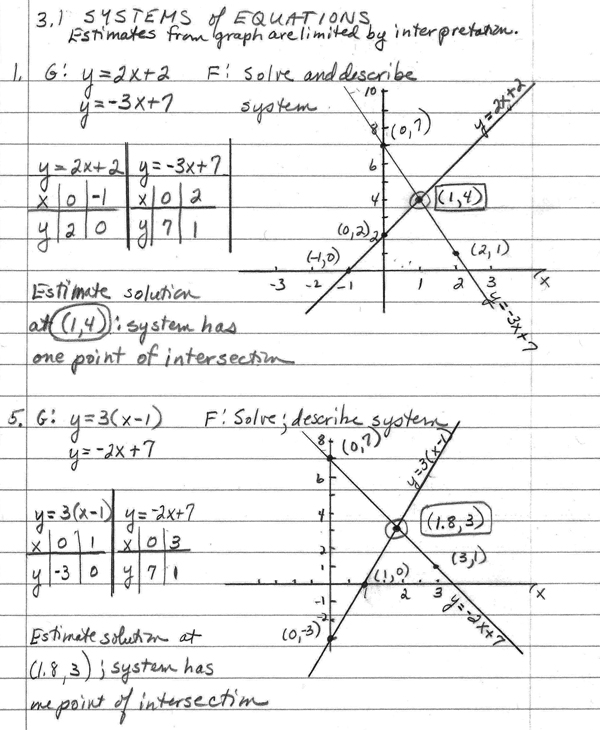 3.1 SYSTEMS of EQUATIONS
Estimates from graph are limited by interpretation.
1. G: y=2x+2 F: Solve and describe
y=-3x+7 system
y=2x+2 y=-3x+7
x 0 -1 x 0 2
y 2 0 y 7 1
Estimate solution
at (1,4): system has
one point of intersection
10
8 (0,7)
y=2x+2
6
4 (1,4)
(0,2) 2
(-1,0) (2,1)
-3 -2 -1 1 2 3 x
y=-3x+7
5. G: y=3(x-1) F: Solve; describe system
y=-2x+7
y=3(x-1) y=-2x+7
x 0 1 x 0 3
y -3 0 y 7 1
Estimate solution at
(1.8,3); system has
one point of intersection
8 (0,7)
y=3(x-1)
6
4 (1.8,3)
2 (3,1)
1 (1,0)
1 2 3 x
-1
-2
(0,-3)
y=-2x+7